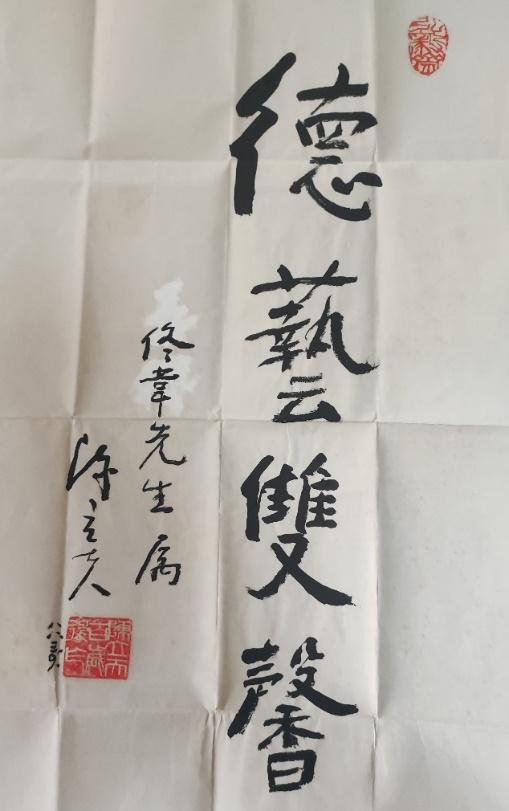 德藝雙馨
佟韋先生属
陳立夫